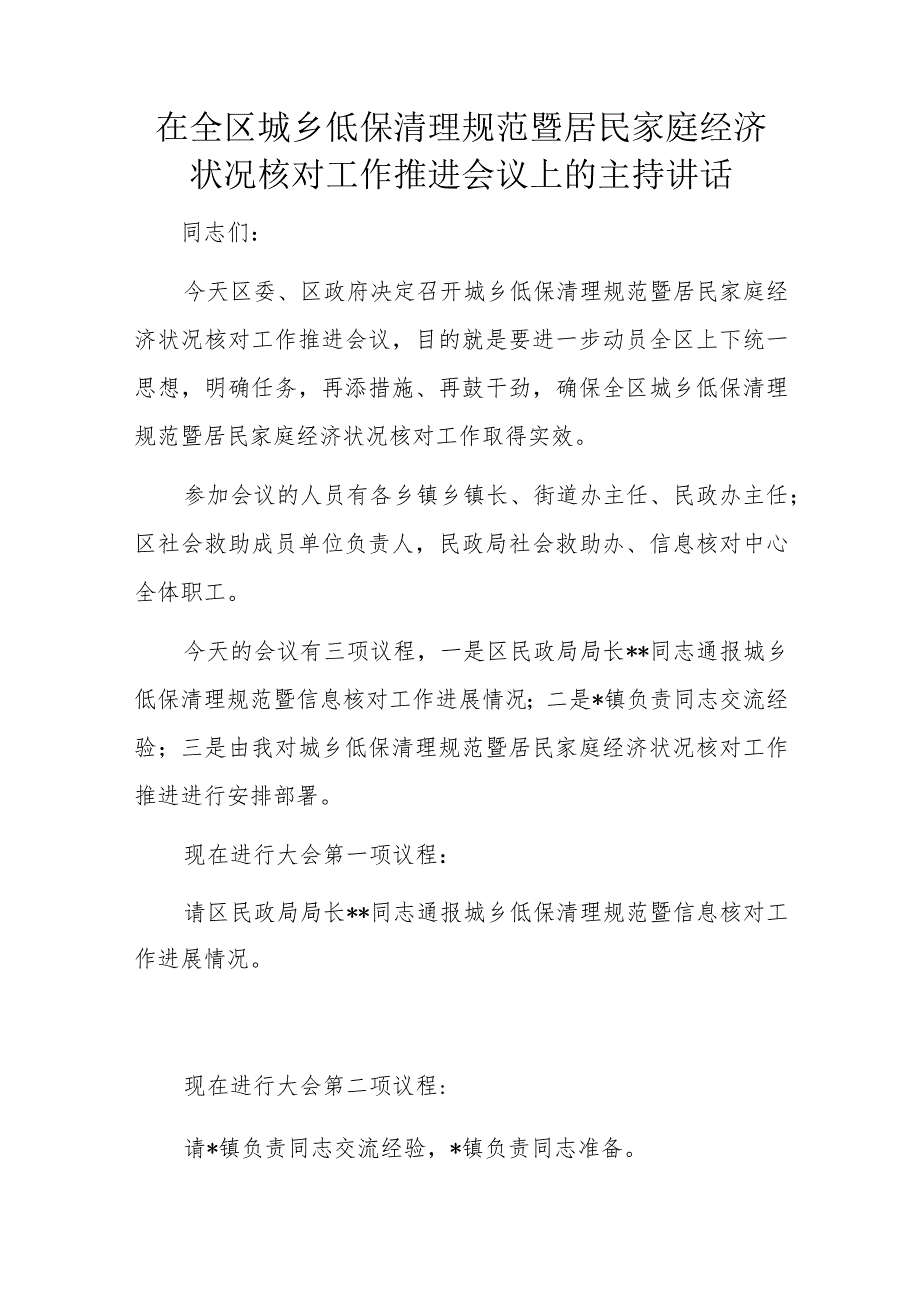 在全区城乡低保清理规范暨居民家庭经济
状况核对工作推进会议上的主持讲话
同志们：
今天区委、区政府决定召开城乡低保清理规范暨居民家庭经
济状况核对工作推进会议，目的就是要进一步动员全区上下统一
思想，明确任务，再添措施、再鼓干劲，确保全区城乡低保清理
规范暨居民家庭经济状况核对工作取得实效。
参加会议的人员有各乡镇乡镇长、街道办主任、民政办主任；
区社会救助成员单位负责人，民政局社会救助办、信息核对中心
全体职工。
今天的会议有三项议程，一是区民政局局长**同志通报城乡
低保清理规范暨信息核对工作进展情况；二是*镇负责同志交流经
验；三是由我对城乡低保清理规范暨居民家庭经济状况核对工作
推进进行安排部署。
现在进行大会第一项议程：
请区民政局局长**同志通报城乡低保清理规范暨信息核对工
作进展情况。
现在进行大会第二项议程：
请*镇负责同志交流经验，*镇负责同志准备。